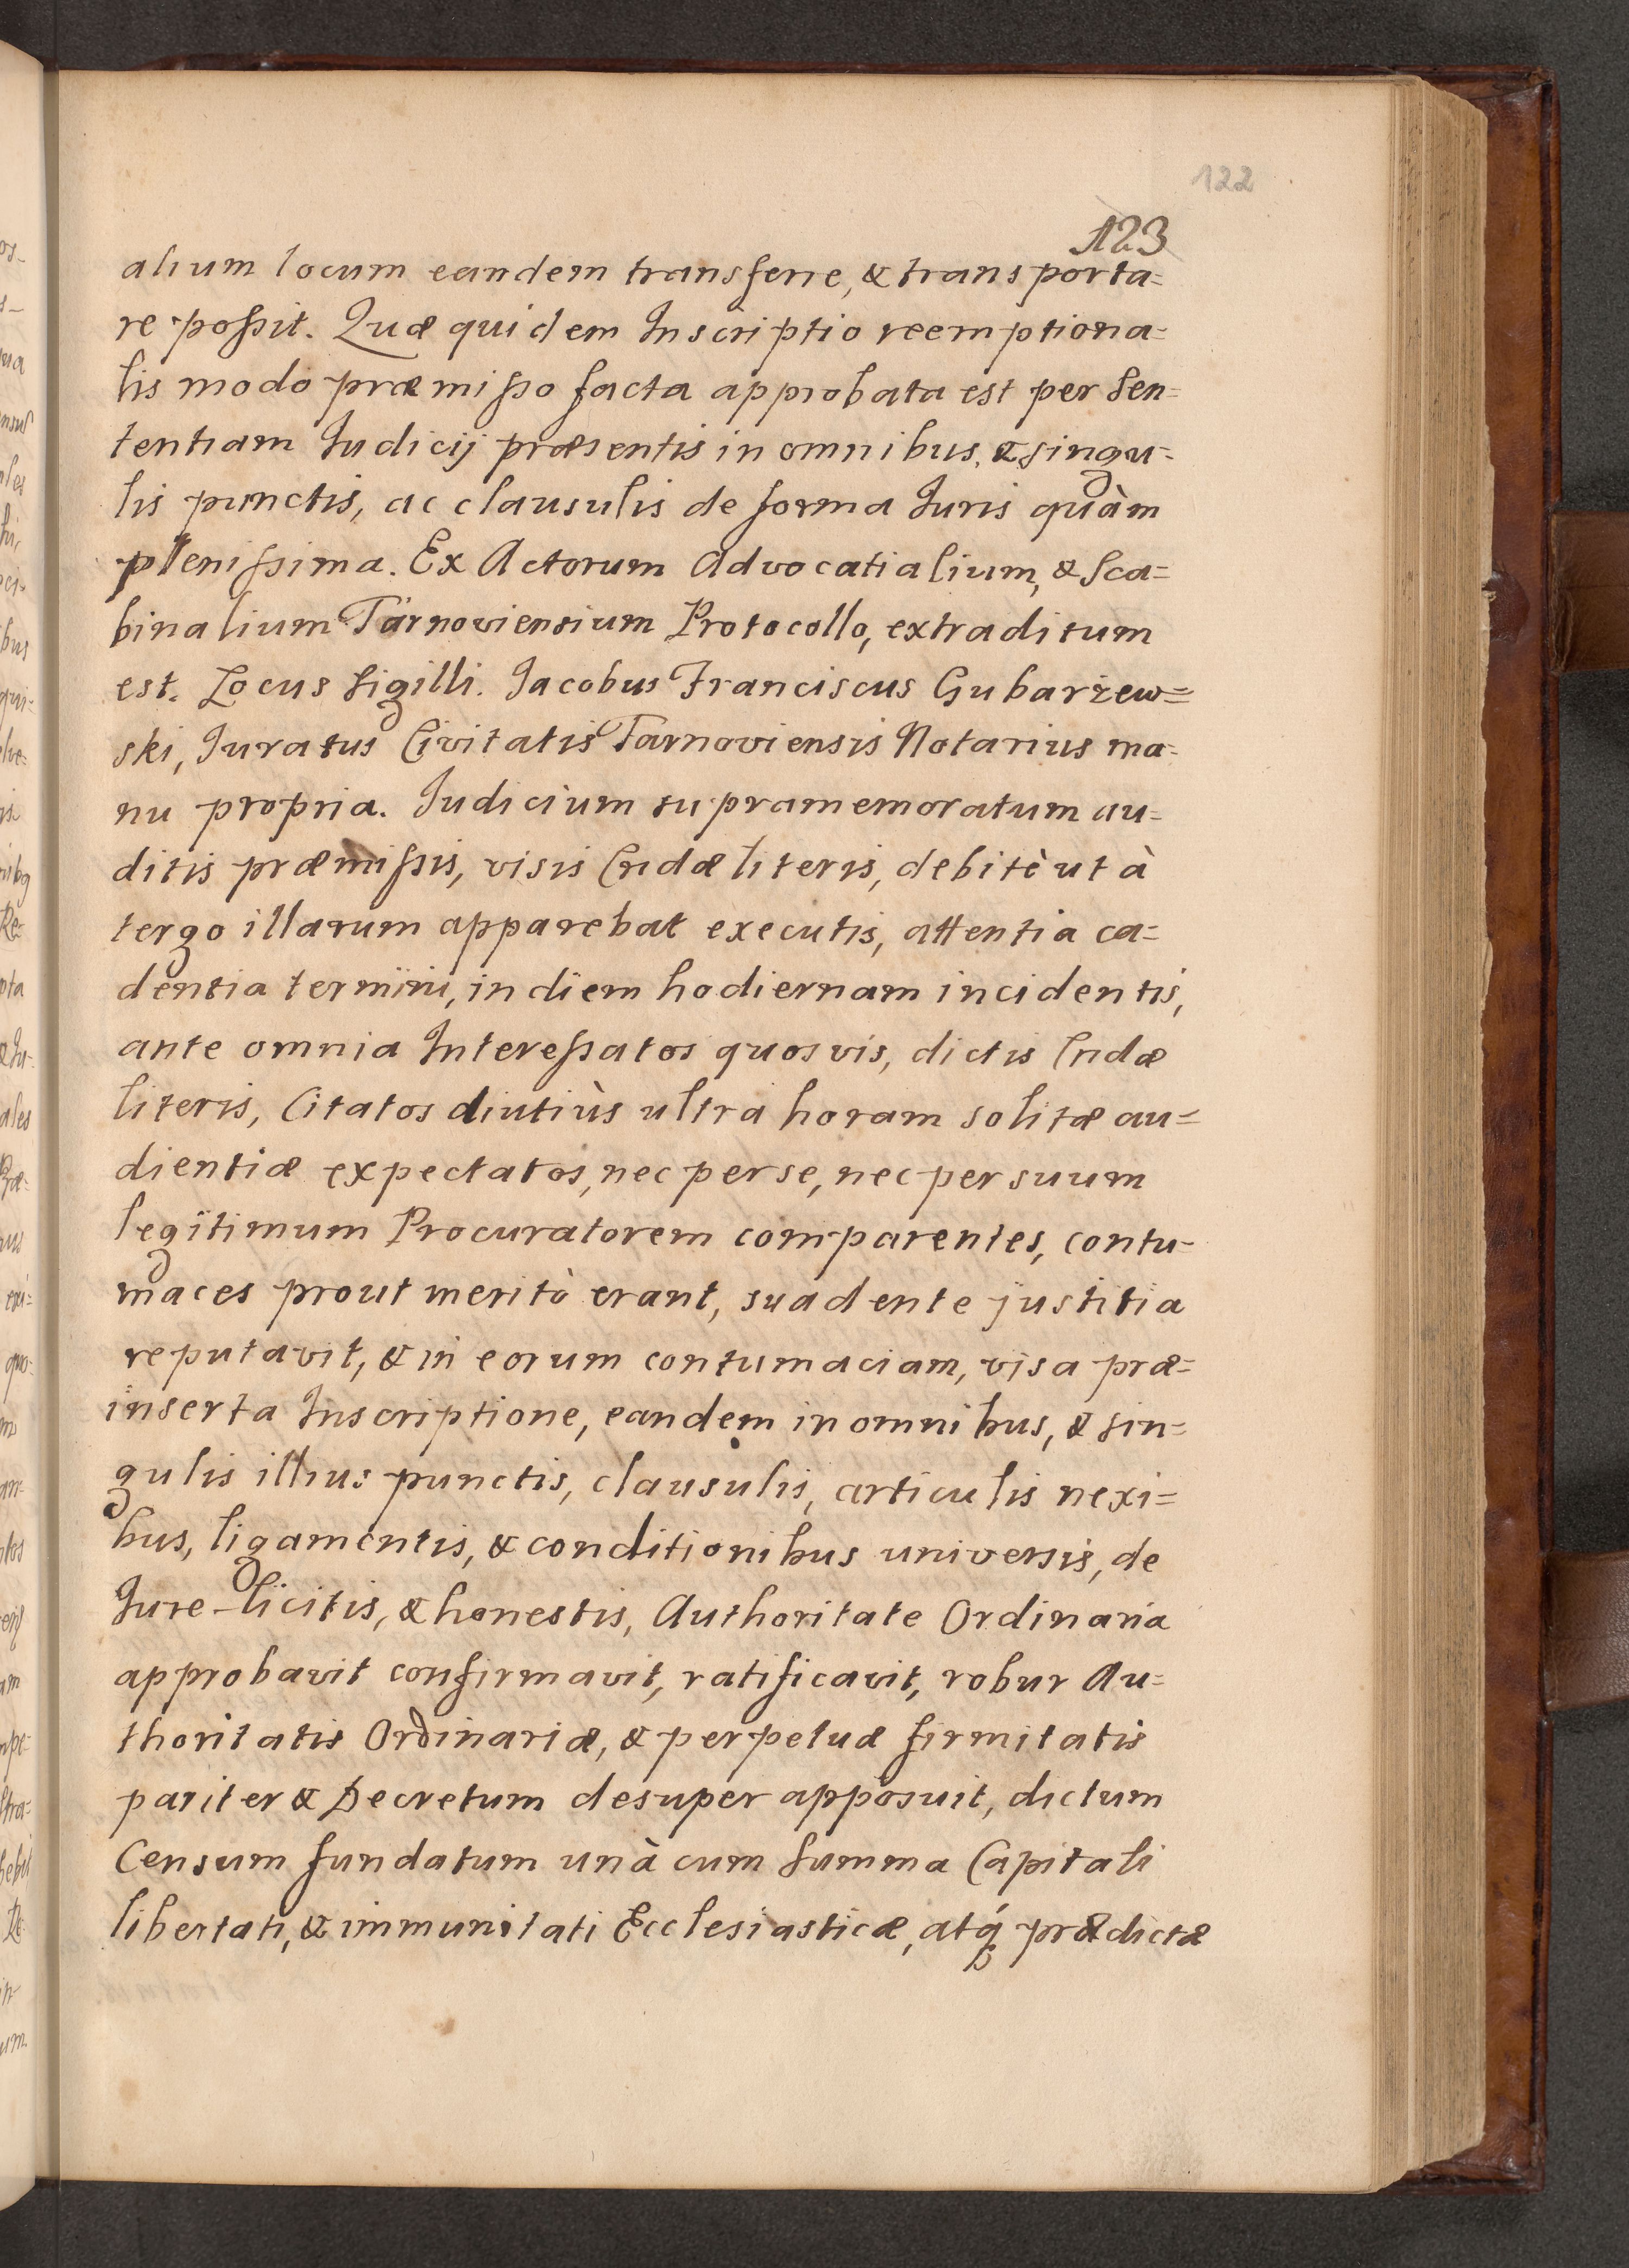 122
123
alium locum eandem transferre, & transporta=
re possit. Quæ quidem Inscriptio reemptiona=
lis modo præmisso facta approbata est per Sen=
tentiam Iudicij præsentis in omnibus, & singu=
lis punctis, ac clausulis de forma Iuris quàm
plenissima. Ex Actorum Advocatialium, & Sca=
binalium Tarnoviensium Protocollo, extraditum
est. Locus Sigilli. Jacobus Franciscus Gubarżew=
ski, Juratus Civitatis Tarnoviensis Notarius ma=
nu propria. Iudicium supramemoratum au=
ditis præmissis, visis Cridæ literis, debitè ut à
tergo illarum apparebat executis, attentia ca=
dentia termini, in diem hodiernam incidentis,
ante omnia Interessatos quosvis, dictis Cridæ
literis, Citatos diutiùs ultra horam solitæ au=
dientiæ expectatos, nec per se, nec per suum
legitimum Procuratorem comparentes, contu=
maces prout meritò erant, suadente justitia
reputavit, & in eorum contumaciam, visa præ=
inserta Inscriptione, eandem in omnibus, & sin=
gulis illius punctis, clausulis, articulis nexi=
bus, ligamentis, & conditionibus universis, de
Iure licitis, & honestis, Authoritate Ordinaria
approbavit confirmavit, ratificavit, robur Au=
thoritatis Ordinariæ, & perpetuæ firmitatis
pariter & Decretum desuper apposuit, dictum
Censum fundatum unà cum Summa Capitali
libertati, & immunitati Ecclesiasticæ, atq́ꝫ prædictæ